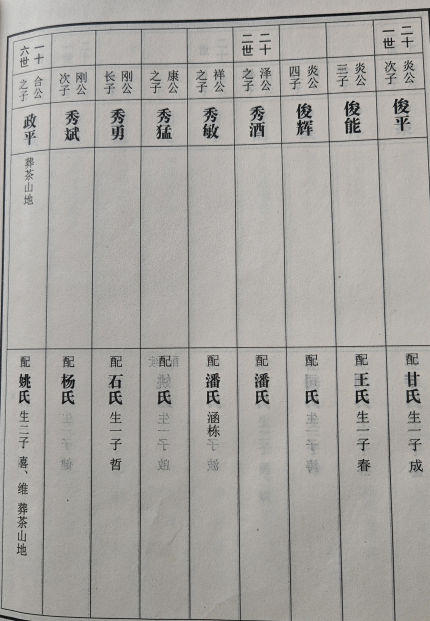 二十一世 炎公次子 俊平 配甘氏 生一子 成
炎公三子 俊能 配王氏 生一子 春
炎公四子 俊辉 配 氏
二十二世 泽公之子 秀酒 配潘氏
祥公之子 秀敏 配潘氏 涵栋
康公之子 秀猛 配 氏
刚公长子 秀勇 配石氏 生一子 哲
刚公次子 秀斌 配杨氏
一十六世 合公之子 政平 葬茶山地 配姚氏 生二子 喜、维 葬茶山地